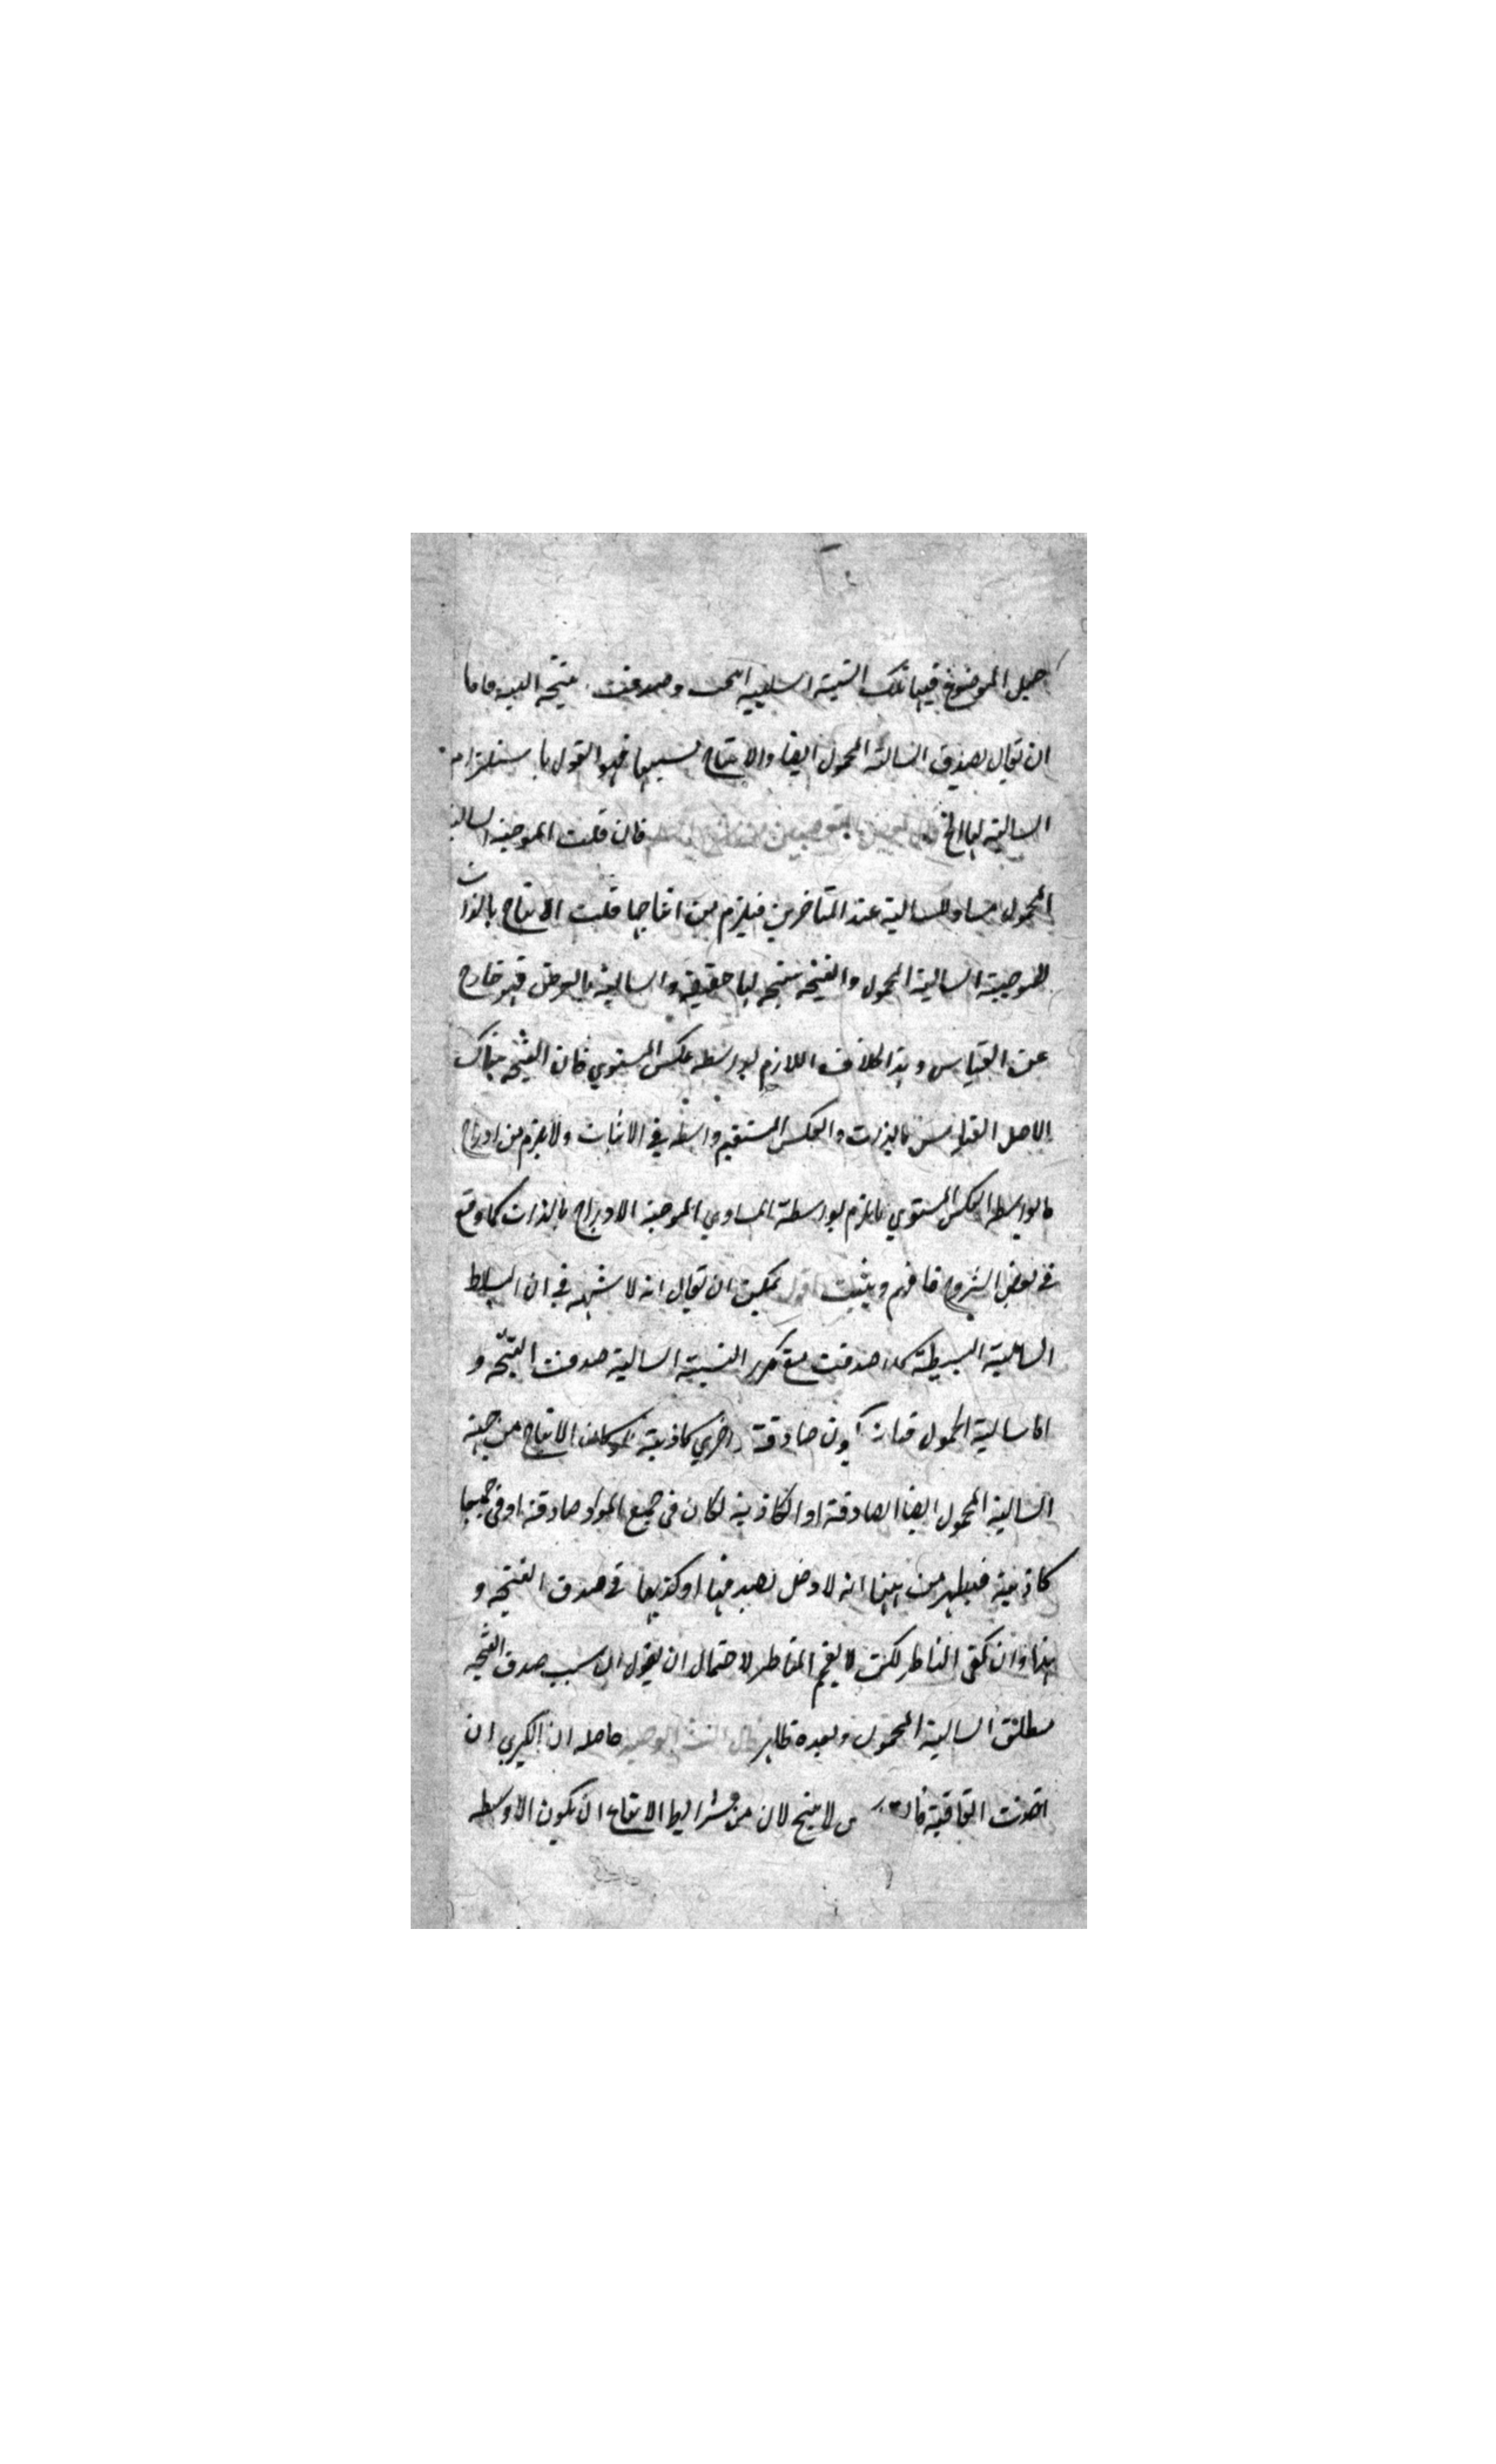 جعل الموضوع فيها تلك النسبة السلبية وصدقت نتيجة البتة فاما
ان يقال بصدق السالبة المحمول ايضا والانتاج بسببها فهو القول باستلزام
السالبة لها الخ فان قلت الموجبة السالبة
المحمول مساو للسالبة عند المتاخرين فيلزم من انتاجها قلت الانتاج بالذات
للموجبة السالبة المحمول والنتيجة نتيجة لها حقيقة والسالبة بالعرض فهو خارج
عن القياس وهذا بخلاف اللازم بواسطة عكس المستوي فان النتيجة هناك
لاصل القياس بالذات والعكس المستقيم واسطة في الاثبات ولا يلزم من ادراج
ما بواسطة العكس المستوي ما يلزم بواسطة المساوي الموجبة الادراج بالذات كما وقع
في بعض الشروح فافهم وتثبت اقول يمكن ان يقال انه لا شبهة في ان السلب
السالبة البسيطة كلما صدقت مع تكرر النسبة السالبة صدقت النتيجة و
اما سالبة المحمول فتارة يكون صادقة واخرى كاذبة فلو كان الانتاج من جهة
السالبة المحمول ايضا الصادقة او الكاذبة لكان في جميع المواد صادقة او في جميعها
كاذبة فيظهر من ههنا انه لا دخل لصدقها او كذبها في صدق النتيجة و
هذا وان كفى الناظر لكن لا يفحم المناظر لاحتمال ان يقول ان سبب صدق النتيجة
مطلق السالبة المحمول وبعده ظاهر قال حاصله ان الكبرى ان
اخذت اتفاقية لا ينتج لان من شرايط الانتاج ان يكون الاوسط